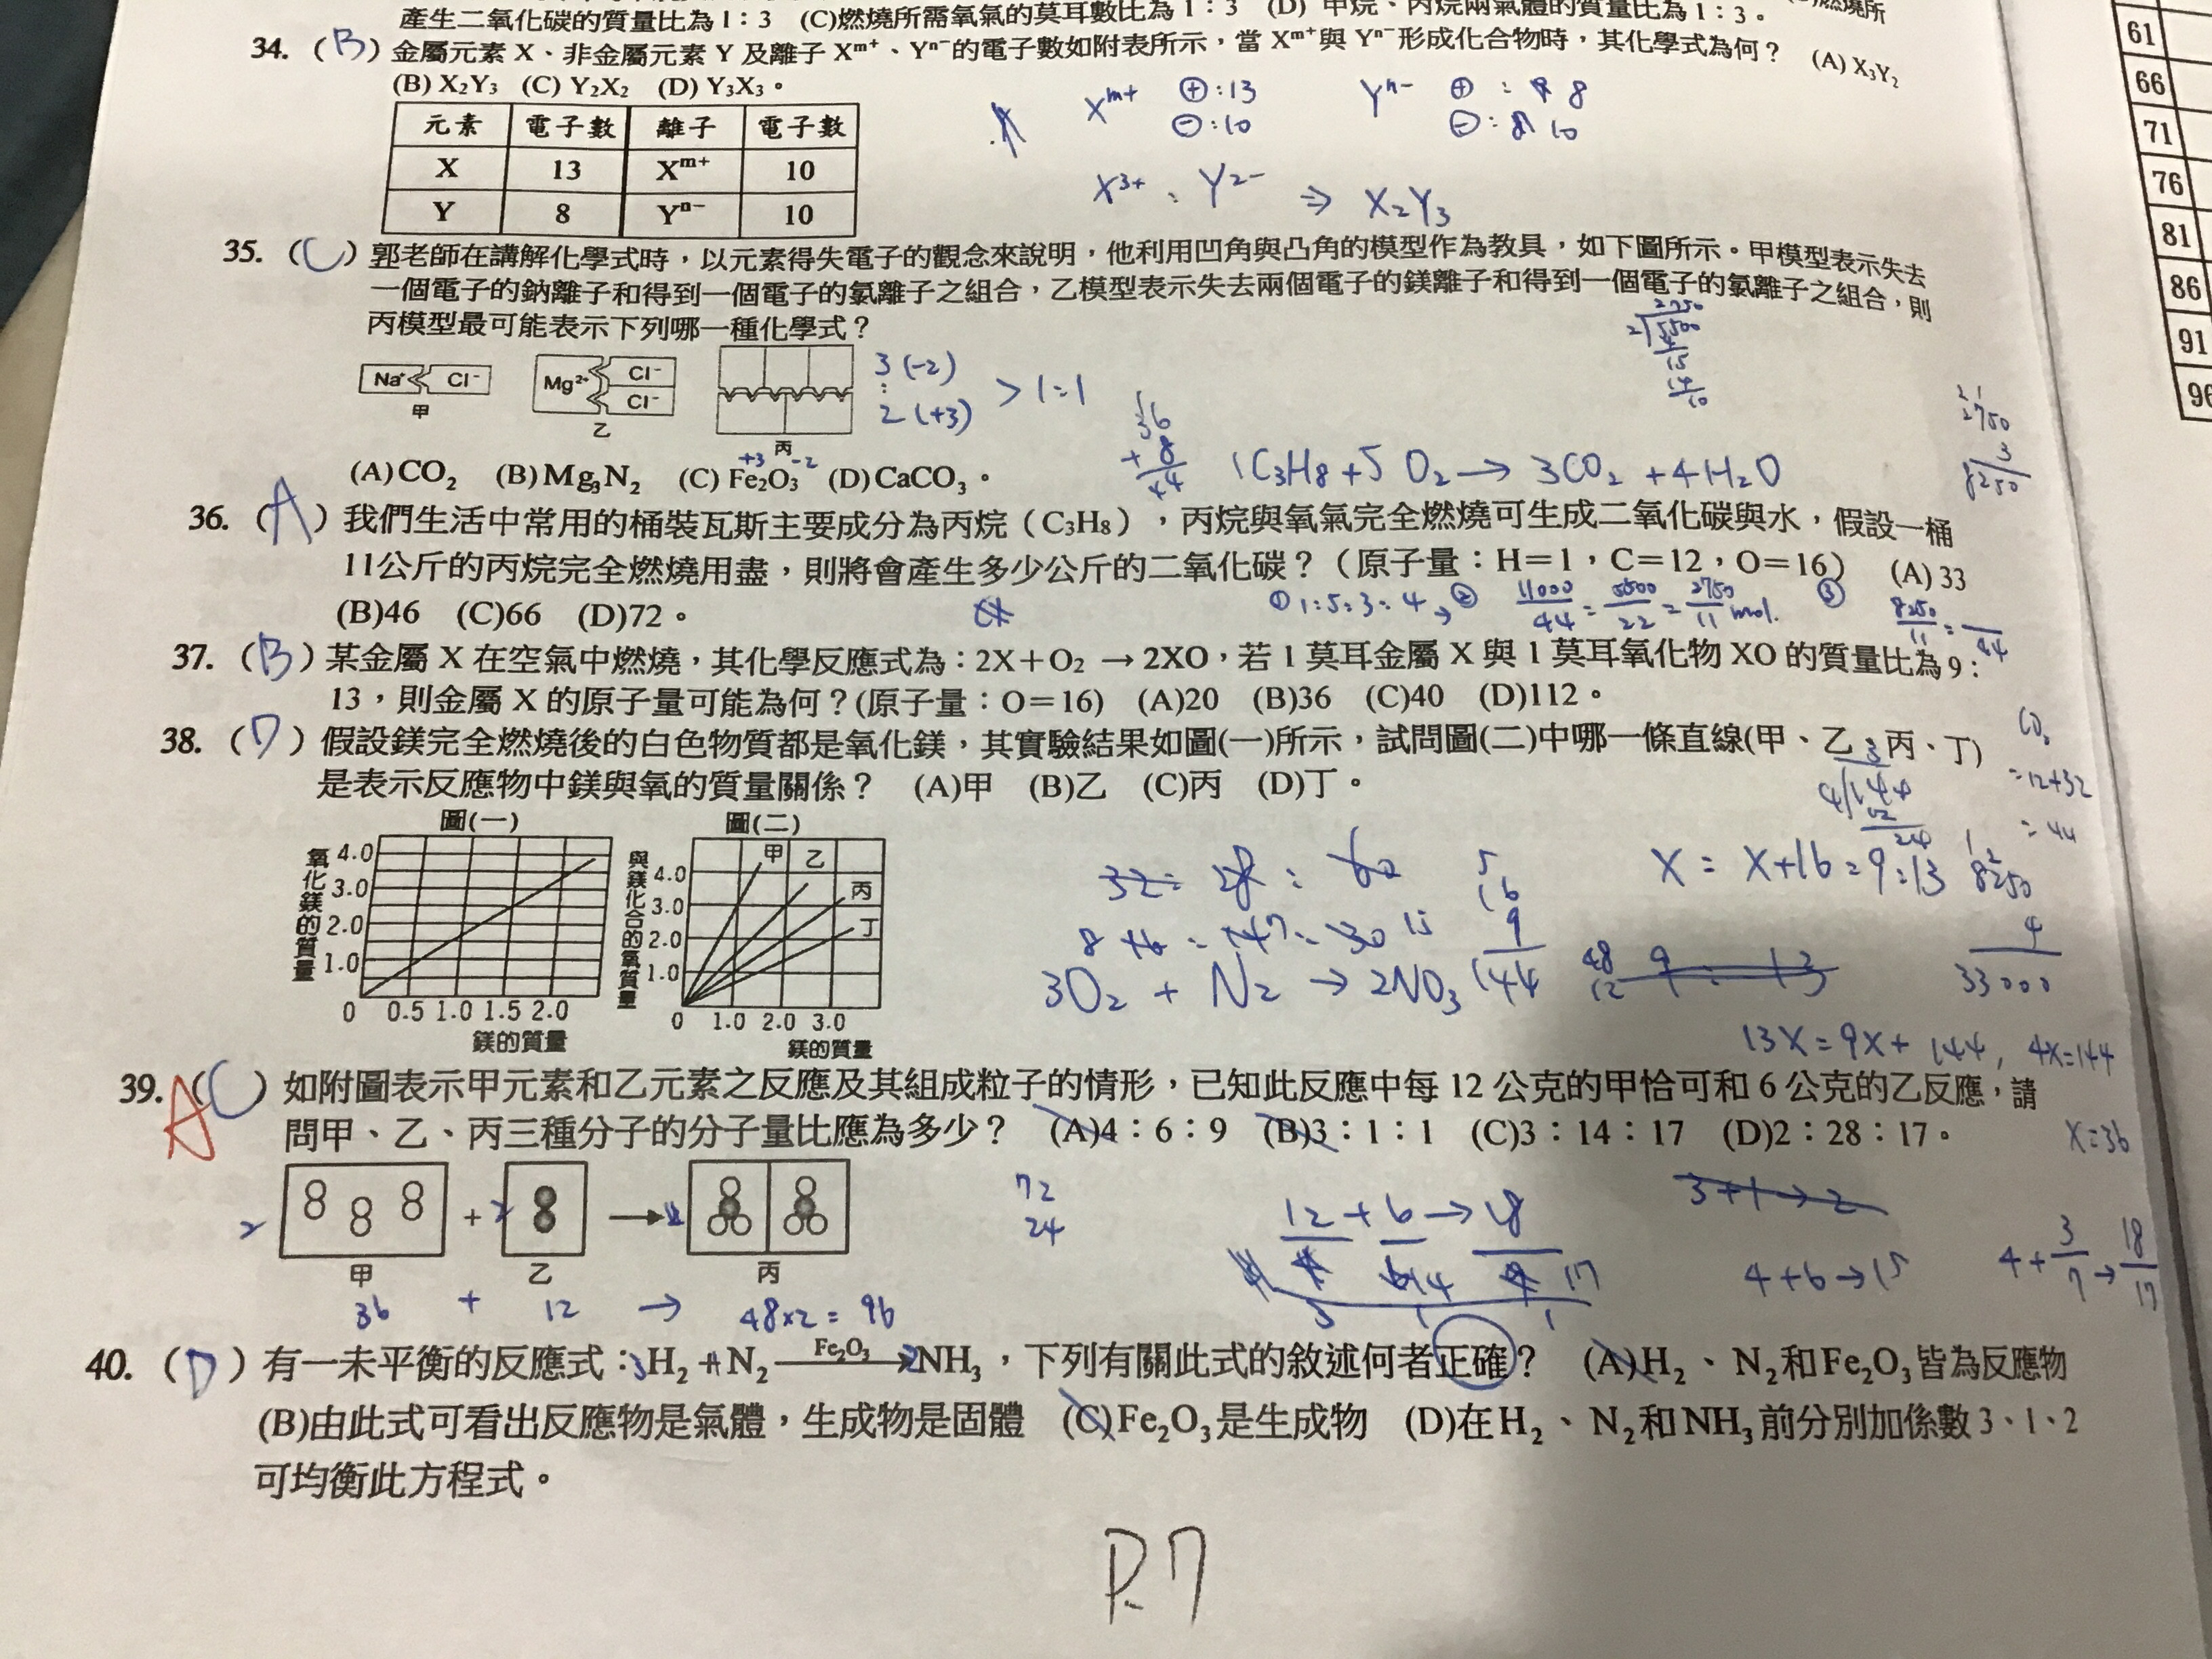 產生二氧化碳的質量比為1：3 (C)燃燒所需氧氣的莫耳數比為1：3 (D) 甲烷、丙烷兩氣體的質量比為1：3。
34. (B) 金屬元素 X、非金屬元素 Y 及離子 Xᵐ⁺、Yⁿ⁻的電子數如附表所示，當 Xᵐ⁺與 Yⁿ⁻形成化合物時，其化學式為何？ (A) X₃Y₂
(B) X₂Y₃ (C) Y₂X₂ (D) Y₃X₃。
元素 電子數 離子 電子數
X 13 Xᵐ⁺ 10
Y 8 Yⁿ⁻ 10
Xᵐ⁺ ⊕:13 Yⁿ⁻ ⊕: 8
⊖:10 ⊖: 10
X³⁺、Y²⁻ ⇒ X₂Y₃
35. (C) 郭老師在講解化學式時，以元素得失電子的觀念來說明，他利用凹角與凸角的模型作為教具，如下圖所示。甲模型表示失去
一個電子的鈉離子和得到一個電子的氯離子之組合，乙模型表示失去兩個電子的鎂離子和得到一個電子的氯離子之組合，則
丙模型最可能表示下列哪一種化學式？
2750
2 5500
Na⁺ Cl⁻
甲
Mg²⁺ Cl⁻
Cl⁻
乙
丙
3 (-2)
:
2 (+3)
> 1:1
+3 -2
(A)CO₂ (B)Mg₃N₂ (C) Fe₂O₃ (D)CaCO₃。
36
+ 8
44
1C₃H₈+5 O₂→ 3CO₂ +4H₂O
2750
3
8250
36. (A) 我們生活中常用的桶裝瓦斯主要成分為丙烷（C₃H₈），丙烷與氧氣完全燃燒可生成二氧化碳與水，假設一桶
11公斤的丙烷完全燃燒用盡，則將會產生多少公斤的二氧化碳？（原子量：H＝1，C＝12，O＝16） (A) 33
(B)46 (C)66 (D)72。
① 1:5:3:4 ② 11000/44 = 5500/22 = 2750/11 mol. ③ 8250/11 = /44
37. (B) 某金屬 X 在空氣中燃燒，其化學反應式為：2X＋O₂ → 2XO，若 1 莫耳金屬 X 與 1 莫耳氧化物 XO 的質量比為 9：
13，則金屬 X 的原子量可能為何？(原子量：O＝16) (A)20 (B)36 (C)40 (D)112。
38. (D) 假設鎂完全燃燒後的白色物質都是氧化鎂，其實驗結果如圖(一)所示，試問圖(二)中哪一條直線(甲、乙、丙、丁)
是表示反應物中鎂與氧的質量關係？ (A)甲 (B)乙 (C)丙 (D)丁。
CO₂
=12+32
= 44
圖(一)
氧化鎂的質量
4.0
3.0
2.0
1.0
0 0.5 1.0 1.5 2.0
鎂的質量
圖(二)
與鎂化合的氧質量
4.0
3.0
2.0
1.0
0 1.0 2.0 3.0
鎂的質量
甲 乙 丙 丁
3O₂ + N₂ → 2NO₃
16
9
144
X = X+16 = 9:13
8250
4
33000
48
12
9 : 13
13X = 9X + 144, 4X=144
X=36
39. (C) A 如附圖表示甲元素和乙元素之反應及其組成粒子的情形，已知此反應中每 12 公克的甲恰可和 6 公克的乙反應，請
問甲、乙、丙三種分子的分子量比應為多少？ (A)4：6：9 (B)3：1：1 (C)3：14：17 (D)2：28：17。
+
甲 乙 丙
36 + 12 → 48×2 = 96
72
24
12 + 6 → 18
14 17
3 1 1
3+1→2
4+6→15
4 + 3/7 → 18/17
40. (D) 有一未平衡的反應式：3H₂ + N₂ Fe₂O₃→ 2NH₃，下列有關此式的敘述何者正確？ (A)H₂、N₂和Fe₂O₃皆為反應物
(B)由此式可看出反應物是氣體，生成物是固體 (C)Fe₂O₃是生成物 (D)在H₂、N₂和NH₃前分別加係數3、1、2
可均衡此方程式。
P.7
61
66
71
76
81
86
91
96